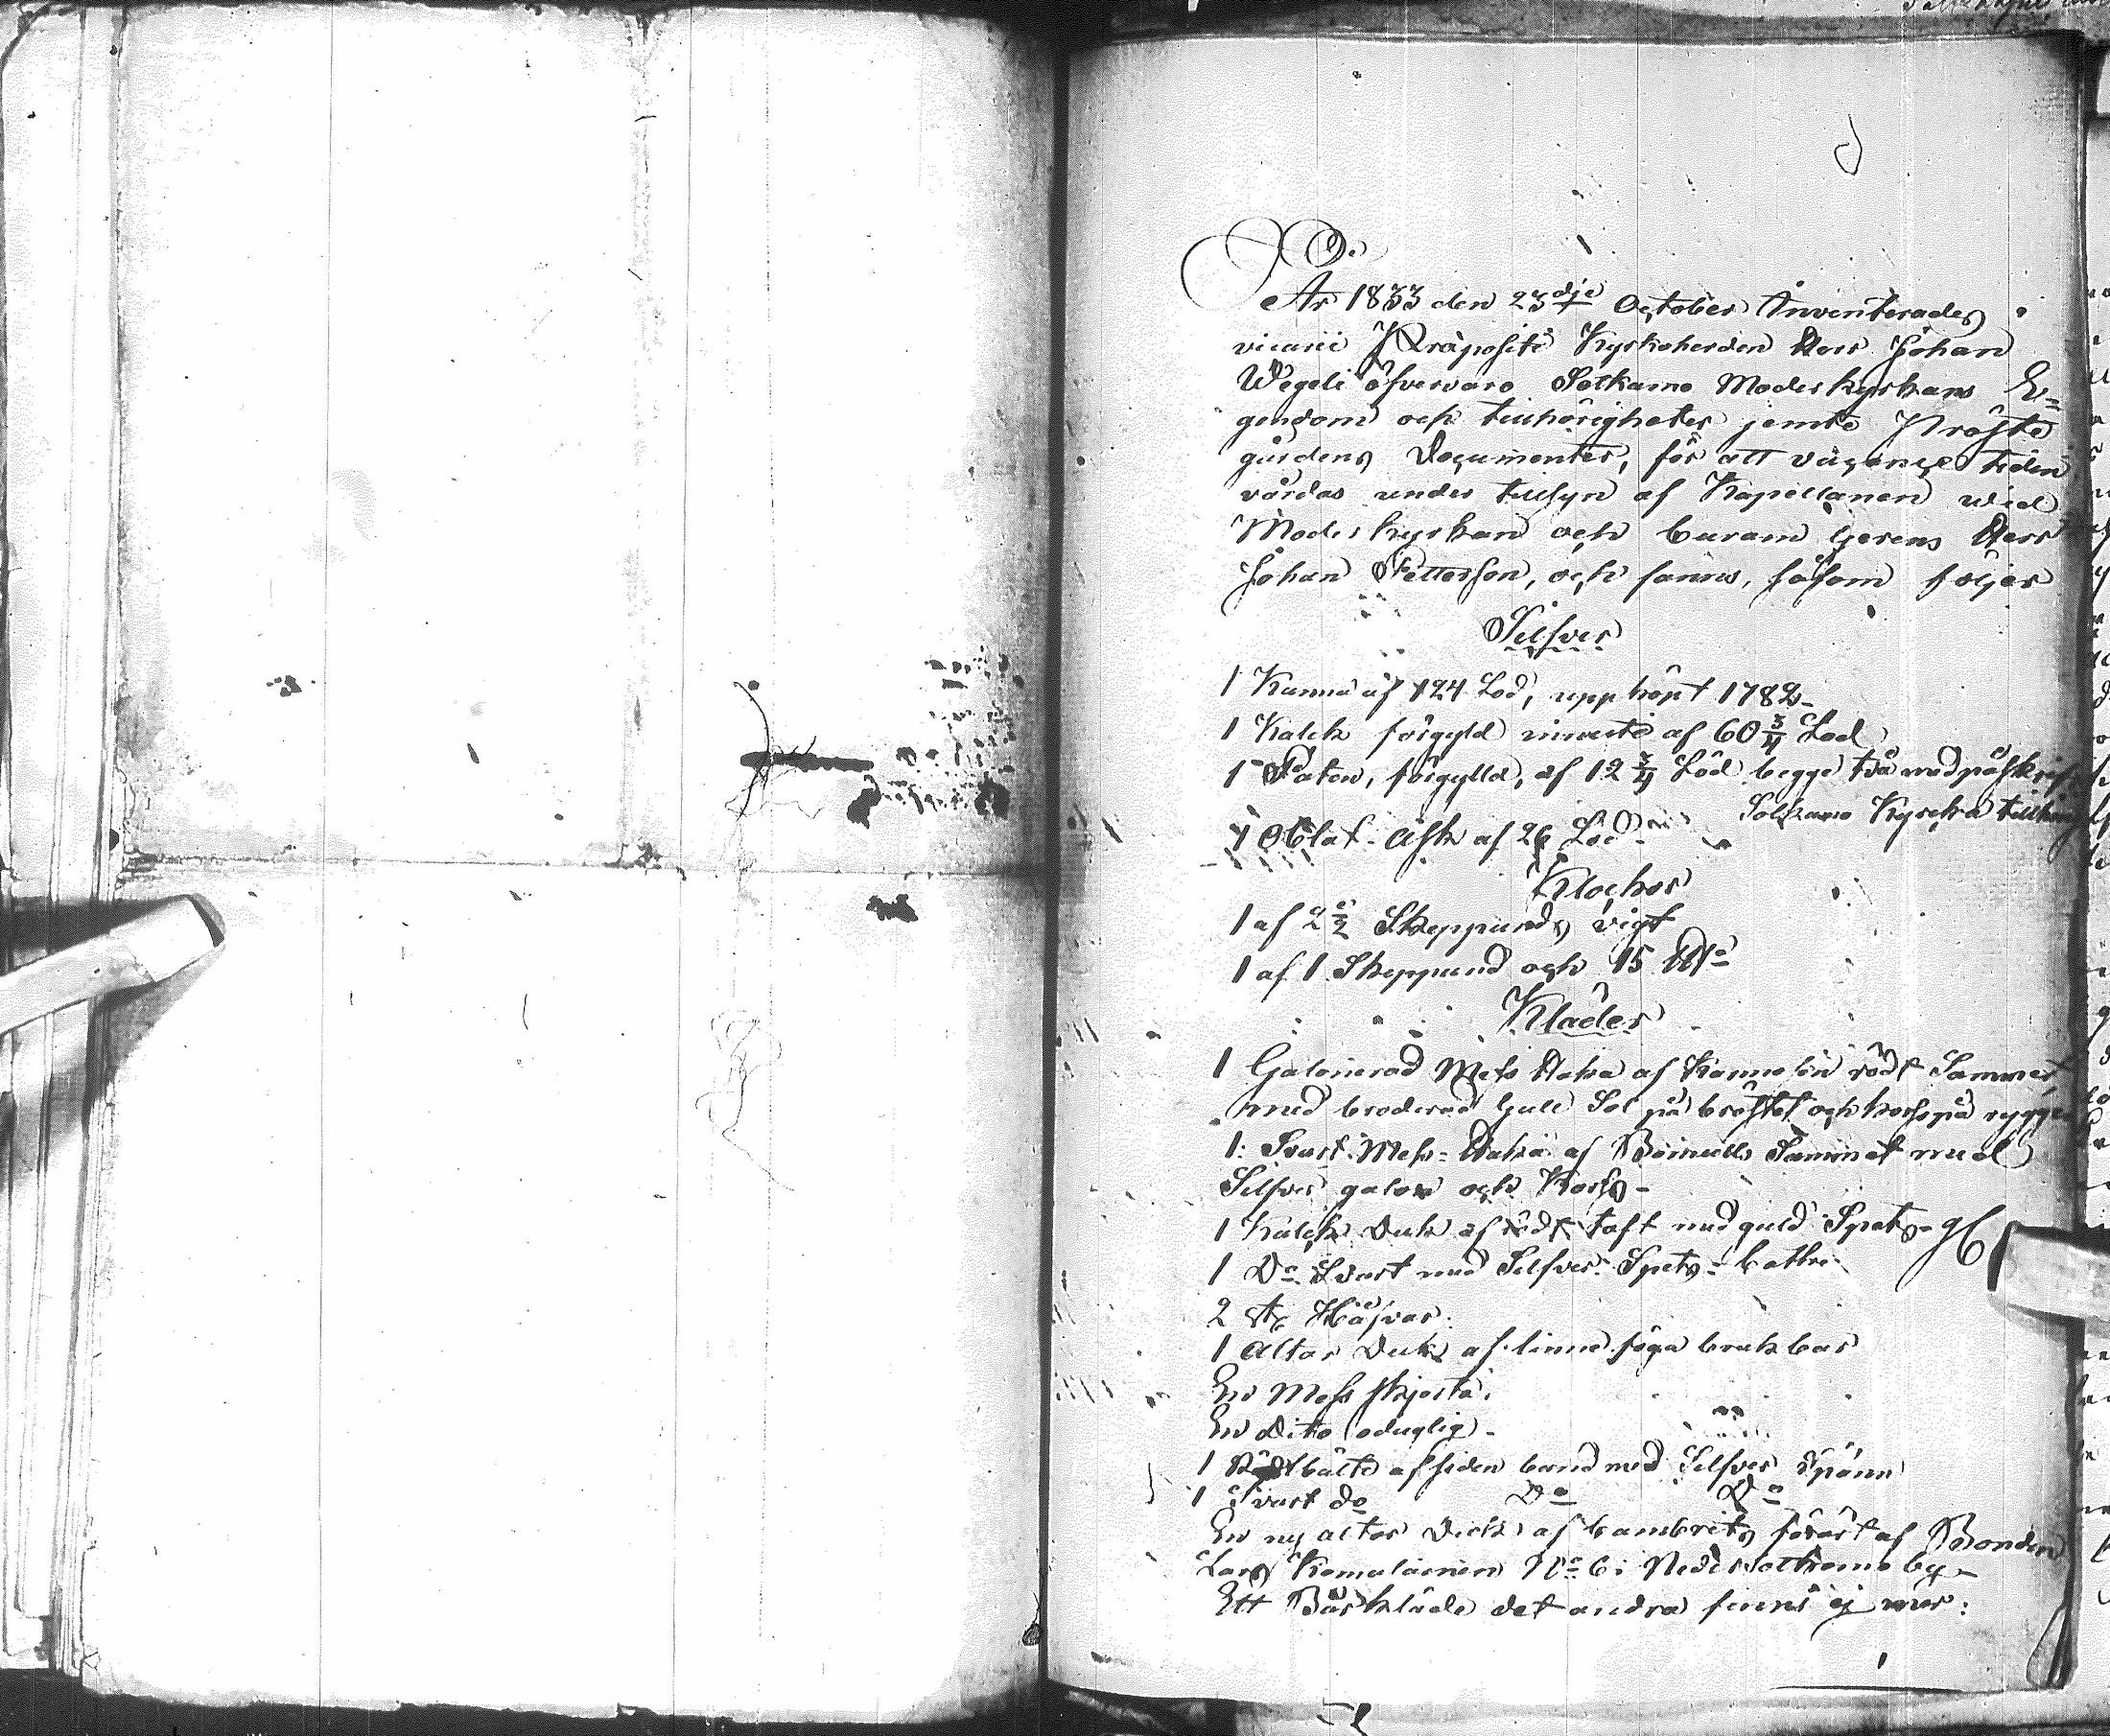 År 1833 den 23dje October Inventerades
vicarii Præpositi Kyrkoherden Herr Johan
Wegeli öfvervaro Sotkamo Moderkyrkans E=
gendom och tillhörigheter jemte Præste
gårdens Documenter, för att vid tiden
vårdas under tillsyn af Kapellanen wid
Moderkyrkan och Curam Gerens Herr
Johan Petterson, och fanns, såsom följer
Silfver
1 Kanna af 124 Lod, uppköpt 1782-
1 Kalck förgyld innuti af 60 3/4 Lod
1 Paten, förgylld, af 12 3/4 Lod begge två med påskrift
Sotkamo Kyrcka
1 Oblat-Ask af 26 Lod
Klockor
1 af 2 1/2 Skeppunds vigt
1 af 1 Skeppund och 15
Kläder
1 Galonerad Mess Haka af Karmosin rödt Sammet
med broderad Gull Sol på bröstet och kors på ryggen
1: Svart Mess-Haka af Bomulls Sammet med
Silfver galon och Kors-
1 Kalck Duk af rödt taft med guld Spets-
1 Do Svart med Silfver Spets-
2 st Håfvar.
1 Altar Duk af linne föga brukbar
En Mess skjorta.
En Dito oduglig-
1 Rödt bälte af siden band med Silfver spänn
1 Svart do Do Do
En ny altar Duck af Cambrits förärt af Bonden
Lars Komulainen No 6 i Neder Sotkamo by-
Ett Bårkläde det andra finns ej mer: